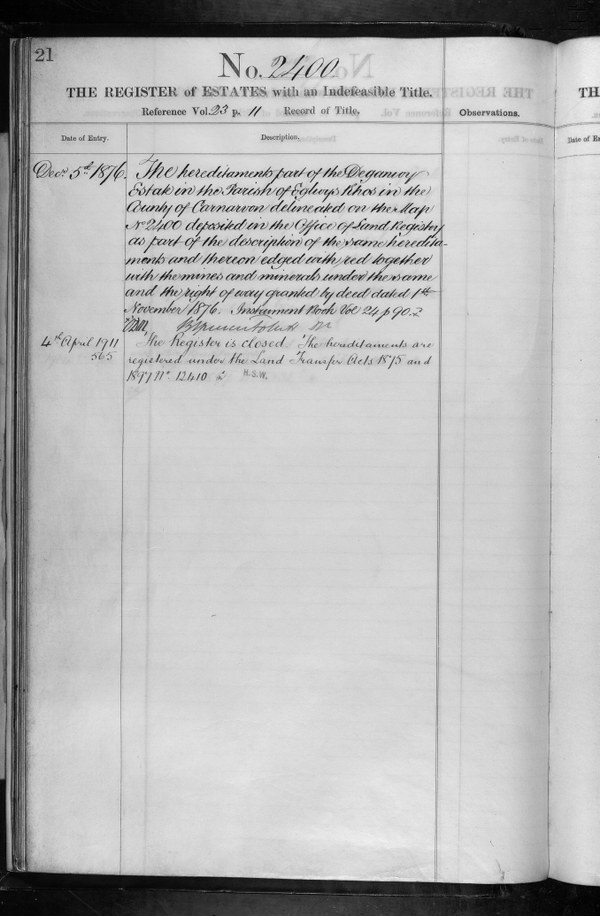 21
No. 2400.
THE REGISTER of ESTATES with an Indefeasible Title.
Reference Vol. 23 p. 11 Record of Title.
Observations.
Date of Entry.
Description.
Decr 5th 1876.
The hereditaments part of the Deganwy
Estate in the Parish of Eglwys Rhos in the
County of Carnarvon delineated on the Map
No 2400 deposited in the Office of Land Registry
as part of the description of the same heredita-
ments and thereon edged with red together
with the mines and minerals under the same
and the right of way granted by deed dated 1st
November 1876. Instrument Book Vol 24 p 90.
4th April 1911
565
The Register is closed. The hereditaments are
registered under the Land Transfer Acts 1875 and
1897 No. 12410
H.S.W.
TH
Date of En